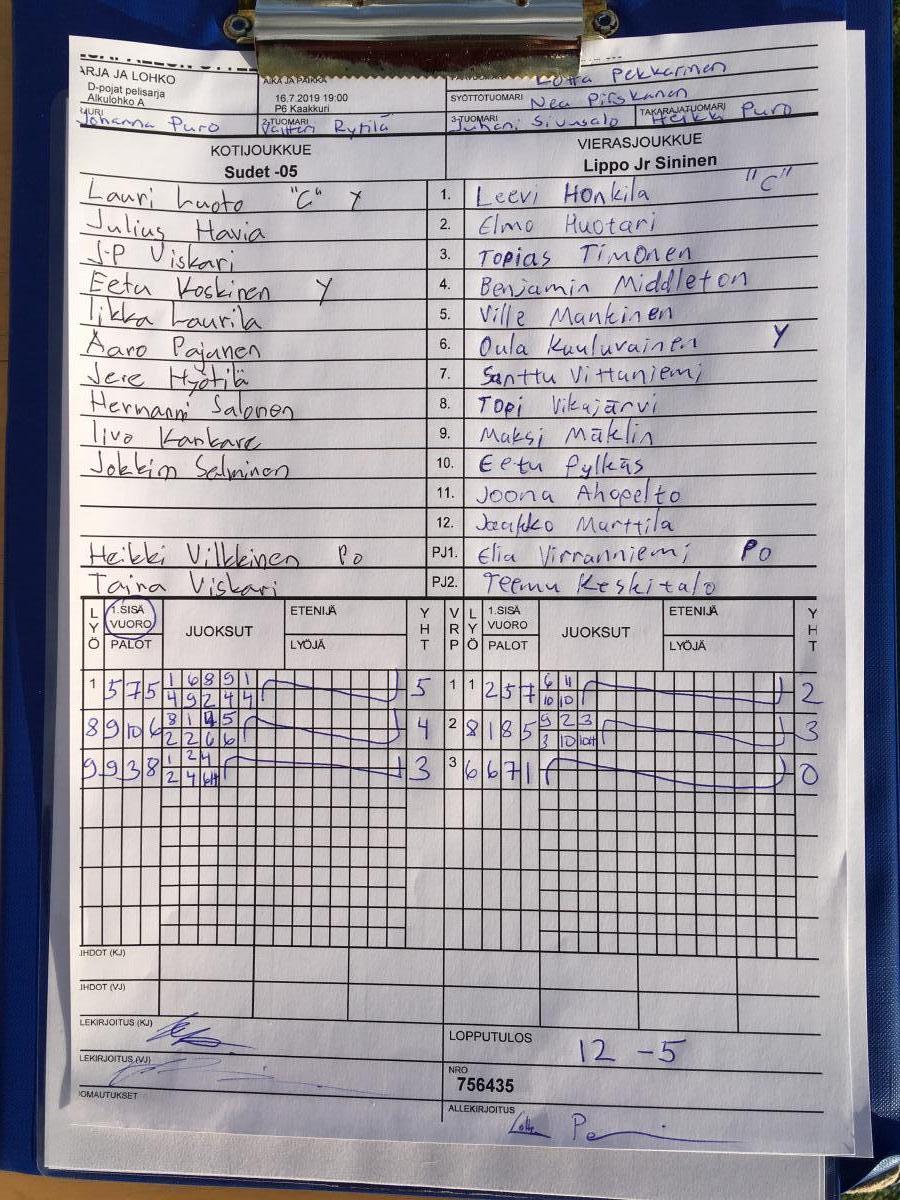 ARJA JA LOHKO
D-pojat pelisarja
Alkulohko A
AIKA JA PAIKKA
16.7.2019 19:00
P6 Kaakkuri
Lotta Pekkarinen
SYÖTTÖTUOMARI Nea Piiskanen
Johanna Puro
2-TUOMARI Rytilä
3-TUOMARI Juhani Sivunsalo
TAKARAJATUOMARI Heikki Puro
KOTIJOUKKUE VIERASJOUKKUE
Sudet -05 Lippo Jr Sininen
Lauri Luoto "C" Y 1. Leevi Honkila "C"
Julius Havia 2. Elmo Huotari
J-P Viskari 3. Topias Timonen
Eetu Koskinen Y 4. Benjamin Middleton
Iikka Laurila 5. Ville Mankinen
Aaro Pajanen 6. Oula Kuuluvainen Y
Jere Hyötilä 7. Santtu Vittaniemi
Hermanni Salonen 8. Topi Vikajärvi
Iivo Kankare 9. Maksi Mäklin
Jokkim Salminen 10. Eetu Pylkäs
11. Joona Ahopelto
12. Jaakko Marttila
Heikki Vilkkinen Po PJ1. Elia Virranniemi Po
Taina Viskari PJ2. Teemu Keskitalo
LYÖ 1.SISÄ VUORO PALOT JUOKSUT ETENIJÄ LYÖJÄ YHT VRP LYÖ 1.SISÄ VUORO PALOT JUOKSUT ETENIJÄ LYÖJÄ YHT
1 5 7 5 1 6 8 9 1 5 1 1 2 5 7 6 11 2
4 9 2 4 4 10 10
8 9 10 6 8 1 4 5 4 2 8 1 8 5 9 2 3 3
2 2 6 6 3 10 10H
9 9 3 8 1 2 4 3 3 6 6 7 1 0
2 4 6H
HDOT (KJ)
HDOT (VJ)
LEKIRJOITUS (KJ)
LOPPUTULOS 12 -5
LEKIRJOITUS (VJ)
NRO
756435
OMAUTUKSET
ALLEKIRJOITUS